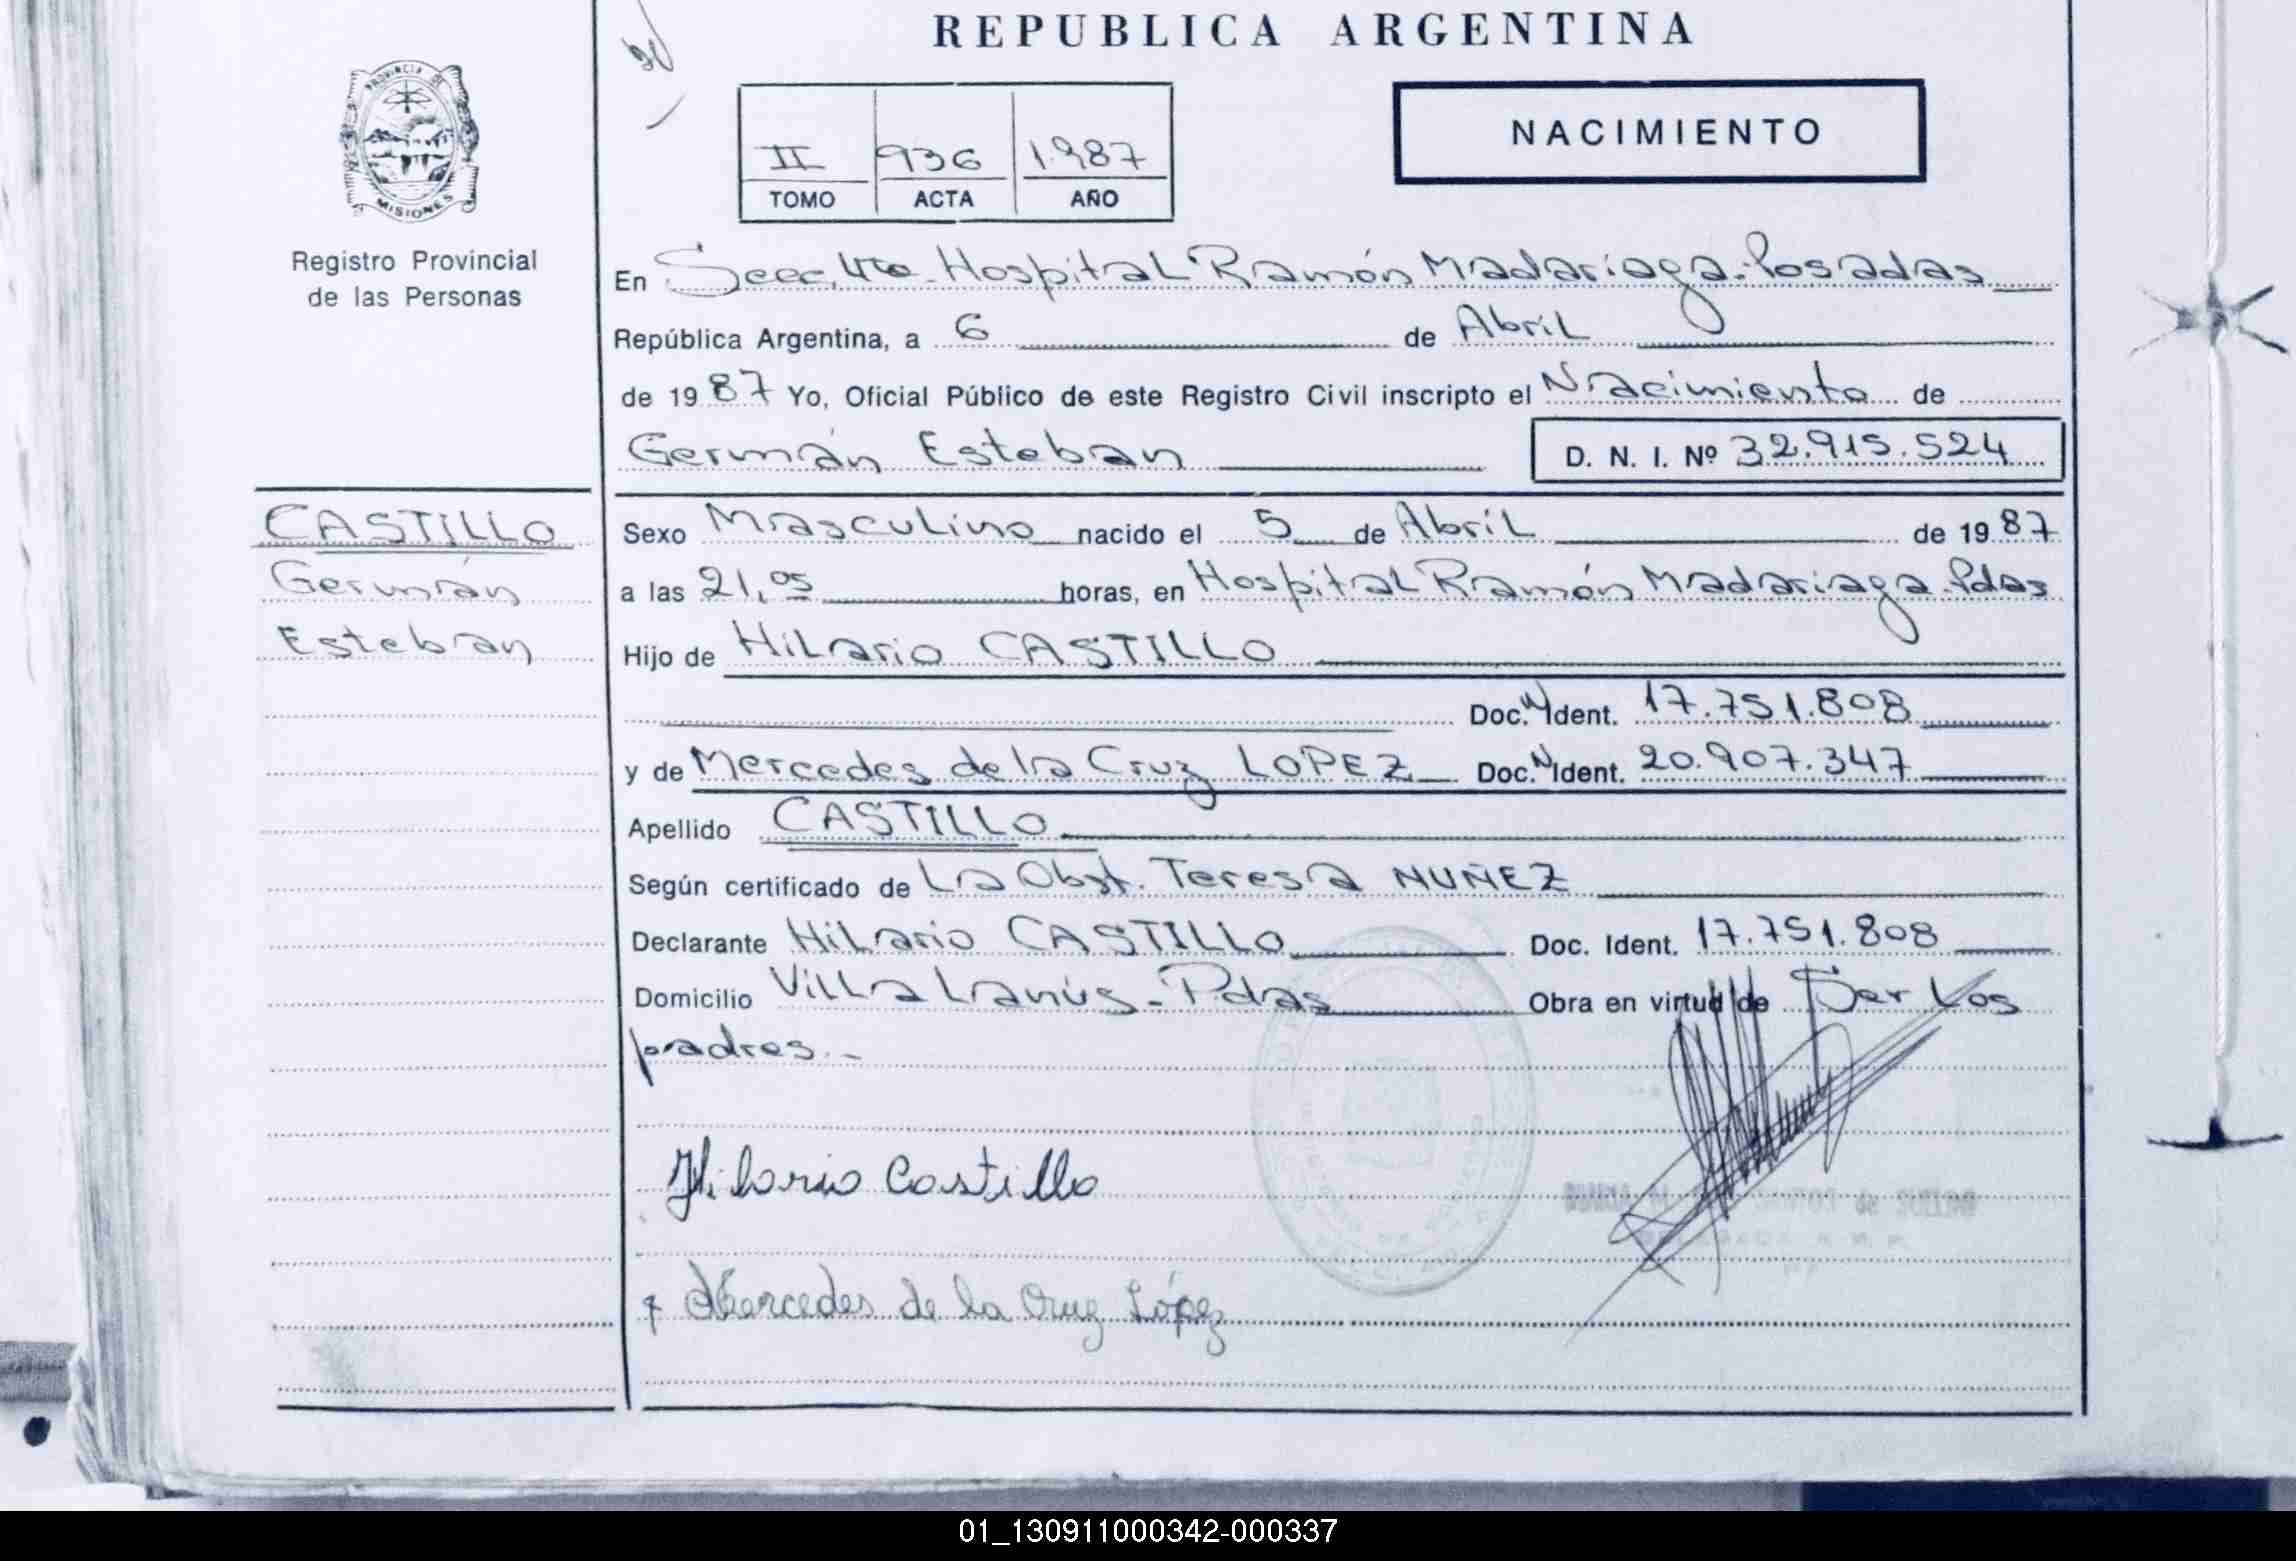 REPUBLICA ARGENTINA
PROVINCIA DE
MISIONES
Registro Provincial
de las Personas
II 936 1.987
TOMO ACTA AÑO
NACIMIENTO
En Secc. 4ta. Hospital Ramón Madariaga. Posadas
República Argentina, a 6 de Abril
de 19 87 Yo, Oficial Público de este Registro Civil inscripto el Nacimiento de
Germán Esteban D. N. I. Nº 32.915.524
CASTILLO
Germán
Esteban
Sexo Masculino nacido el 5 de Abril de 19 87
a las 21,05 horas, en Hospital Ramón Madariaga. Pdas
Hijo de Hilario CASTILLO
Doc. N Ident. 17.751.808
y de Mercedes de la Cruz LOPEZ Doc. N Ident. 20.907.347
Apellido CASTILLO
Según certificado de La Obst. Teresa NUÑEZ
Declarante Hilario CASTILLO Doc. Ident. 17.751.808
Domicilio Villa Lanús - Pdas Obra en virtud de Ser los
padres.-
Hilario Castillo
Mercedes de la Cruz López
01_130911000342-000337